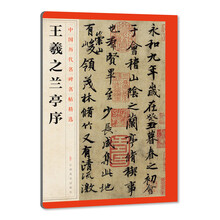 中国历代名碑名帖精选
王羲之兰亭序
永和九年歲在癸丑暮春之初會
于會稽山陰之蘭亭脩稧事
也羣賢畢至少長咸集此地
有崇山峻領茂林脩竹又有清流激